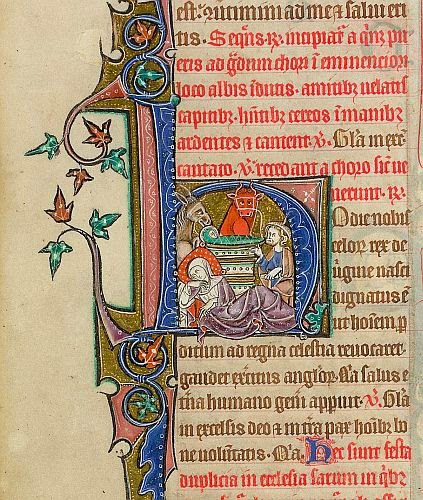 est: ⁊ utimini ad me ⁊ salui eri
tis. Seqns. ℟. incipiat᷑ a qnqȝ pu
eris ad gdum chori ī eminenciori
loco albis īdutis. amitibȝ uelatis
capitibȝ. hñtibȝ cereos ī manibȝ
ardentes ⁊ cantent. ℣. Gla in exc̄
cantato. ℣. recedant a choro sic̄ ue
nerunt. ℟.
Hodie nobis
celoȝ rex de
uirgine nasci
dignatus ē
ut hoīem p
ditum ad regna celestia reuocaret
gaudet ex̄citus angloȝ. Q̄a salus et̄
na humano geñi appuit. ℣. Gla
in excelsis deo ⁊ in tra pax hoībȝ bo
ne uoluntatis. Q̄a. Hec sunt festa
duplicia in ecclesia sarum in qibȝ